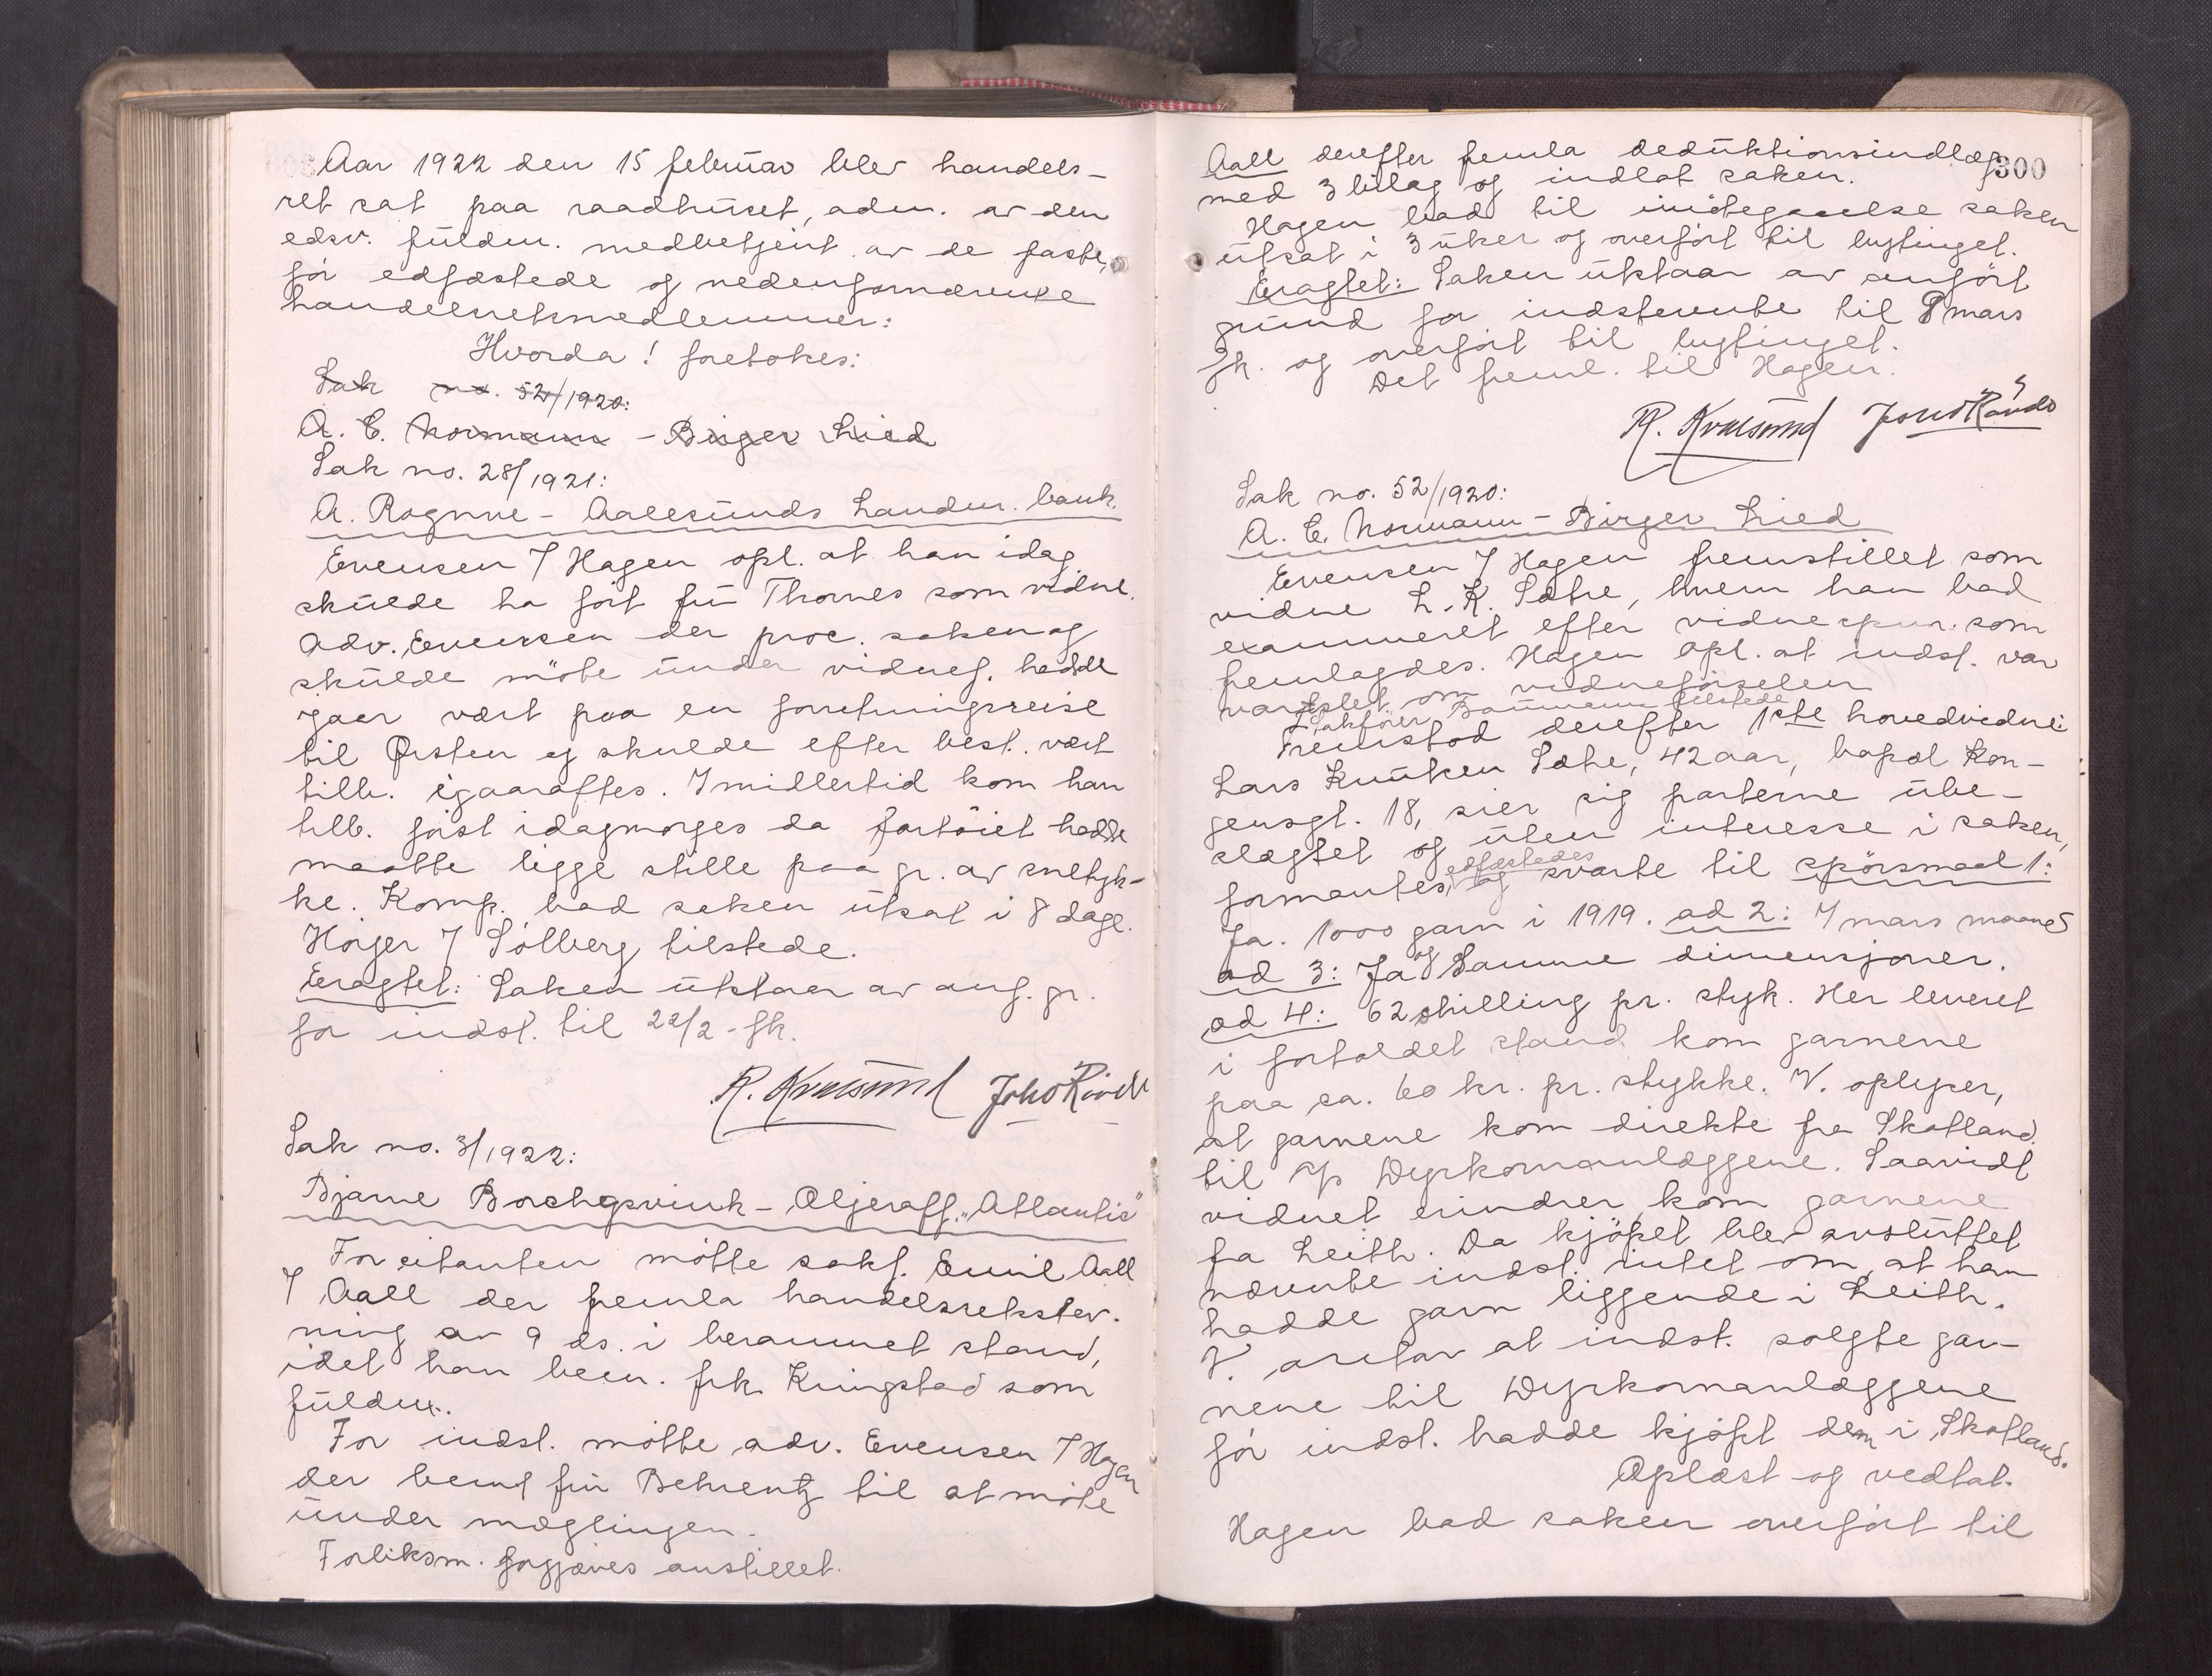 Aar 1922 den 15 februar blev handels-
ret sat paa raadhuset, adm. av den
edsv. fuldm. medbetjent av de faste,
før edfæstede og nedenfornævnte
handelsretsmedlemmer:
Hvorda! foretokes:
Sak no. 52/1920:
A. E. Normann - Birger Lied
Sak no. 28/1921:
A. Rogune - Aalesunds Landm. bank.
Evensen / Hagen opl. at han idag
skulde ha ført fru Thornes som vidne.
Adv. Evensen der proc. saken og
skulde møte under vidnef. hadde
igaar vært paa en forretningsreise
til Ørsten og skulde efter best. vært
tilb. igaaraftes. Imidlertid kom han
tilb. først idagmorges da fartøiet hadde
maatte ligge stille paa gr. av snetyk-
ke. Komp. bad saken utsat i 8 dage.
Høyer / Solberg tilstede.
Eragtet: Saken utstaar av anf. gr.
for indst. til 22/2 - fk.
R. Kvalsund
Sak no. 3/1922:
Bjarne Borchgrevink - Oljeraff. "Atlantic"
For citanten møtte sakf. Emil Aall
/ Aall der fremla handelsretsstev-
ning av 9 ds. i berammet stand,
idet han bem. frk. Kringstad som
fuldm.
For indst. møtte adv. Evensen / Hagen
der bemf fru Behrentz til at møte
under mæglingen.
Forliksm. forgjæves anstillet.
Aall derefter fremla deduktionsindlæg
300
med 3 bilag og indlot saken.
Hagen bad til imøtegaaelse saken
utsat i 3 uker og overført til bytinget.
Eragtet: Saken utstaar av anført
grund for indstevnte til 8 mars
fk. og overført til bytinget.
Det freml. til Hagen.
R. Kvalsund
Sak no. 52/1920:
A. E. Normann - Birger Lied
Evensen / Hagen fremstillet som
vidne L. K. Sæthe, hvem han bad
examineret efter vidnespm. som
fremlagdes. Hagen opl. at indst. var
varslet om vidneførselen
Sakfører Baumann tilstede
Fremstod derefter 1ste hovedvidne:
Lars Knutsen Sæthe, 42 aar, bopæl Kon-
gensgt. 18, sier sig parterne ube-
slægtet og uten interesse i saken,
edfæstedes
formantes, og svarte til spørsmaal 1:
Ja. 1000 garn i 1919. ad 2: I mars maaned
ad 3: Ja og Samme dimensjoner.
ad 4: 62 shilling pr. styk. Her leveret
i fortoldet stand kom garnene
paa ca. 60 kr. pr. stykke. V. oplyser,
at garnene kom direkte fra Skotland
til A/s Dyrkornanlæggene. Saavidt
vidnet erindrer kom garnene
fra Leith. Da kjøpet blev avsluttet
nævnte indst. intet om, at han
hadde garn liggende i Leith.
V. antar at indst. solgte gar-
nene til Dyrkornanlæggene
før indst. hadde kjøpt dem i Skotland.
Oplæst og vedtat.
Hagen bad saken overført til